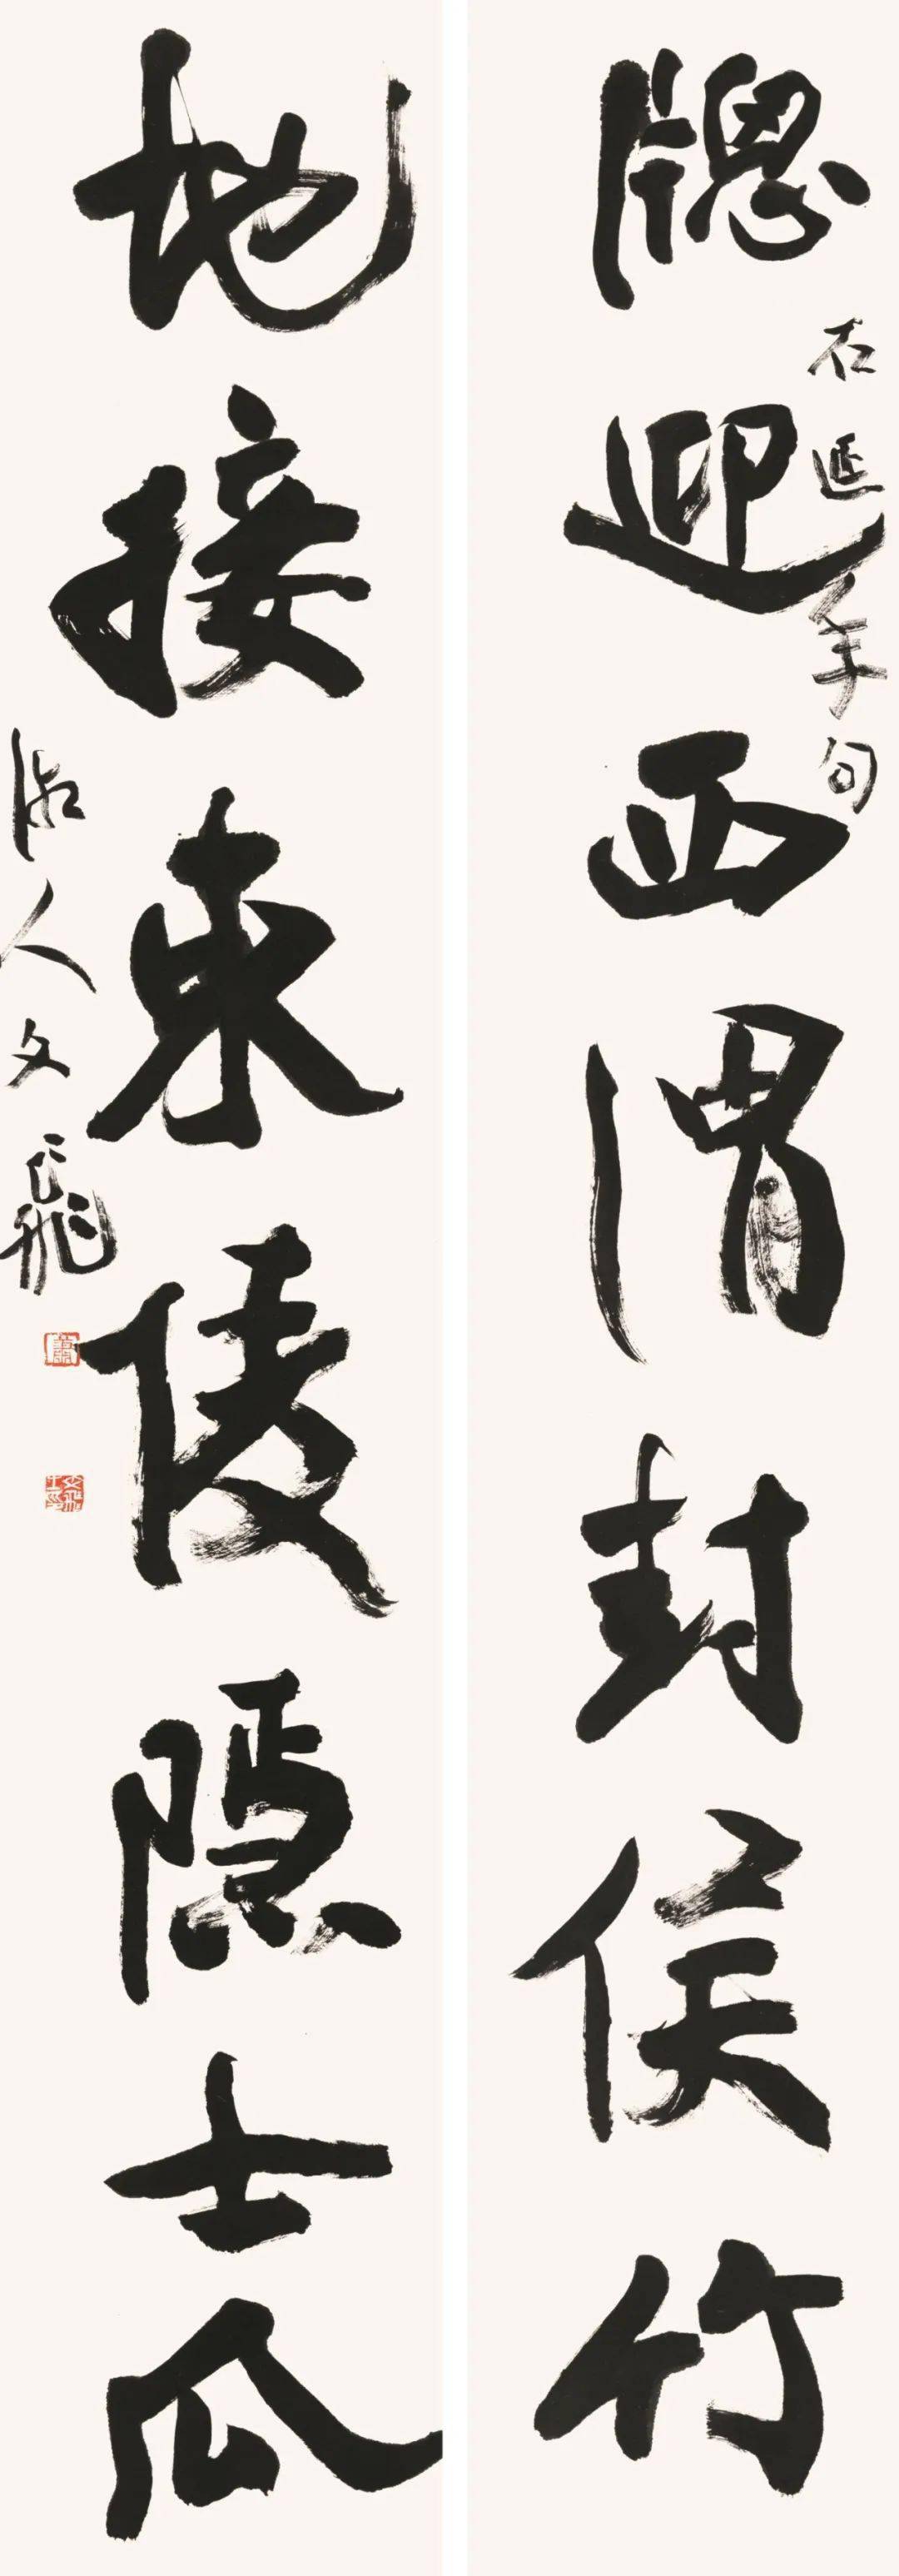 牕迎西渭封侯竹
石延年句
地接東陵隱士瓜
湘人文飛